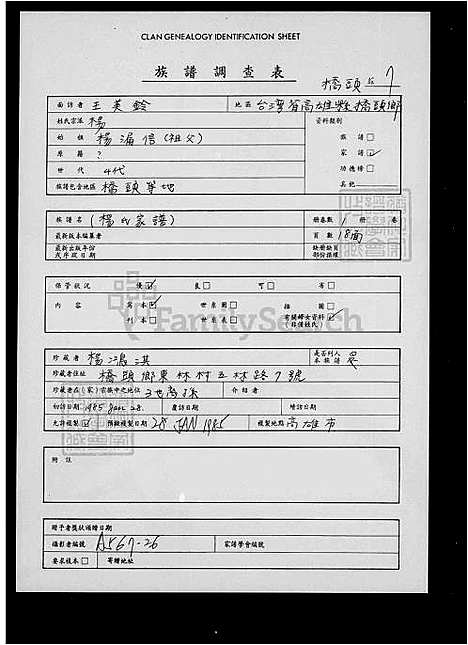 CLAN GENEALOGY IDENTIFICATION SHEET
族譜調查表
橋頭 7
面訪者 王美鈴 地區 台灣省高雄縣橋頭鄉
姓氏宗派 楊 資料類別
始祖 楊漏信(祖父) 族譜□
原籍 ? 家譜☑
世代 4代 功德榜□
族譜包含地區 橋頭等地 其他
族譜名 (楊氏家譜) 冊卷數 1 冊 卷
最新版本編纂者 頁數 18面
最新出版年份或序跋日期 缺冊缺頁部份操縱
保管狀況 優☑ 良□ 可□ 劣□
內容 寫本☑ 世系圖□ 插圖□
刊本□ 世系表□ 有關婦女資料☑(非僅姓氏)
珍藏者 楊鴻淇 是否列入本族譜 是
珍藏者住址 橋頭鄉東林村五林路7號
珍藏者在(家)宗族中之地位 3世裔孫 介紹者
初訪日期 1985 Jan. 28. 覆訪日期 增訪日期
允許複製☑ 預錄複製日期 28 JAN 1985 複製地點 高雄市
附註
贈予者獎狀頒贈日期
攝影者編號 A567-26 家譜學會編號
要求複本□ 寄贈地址
FamilySearch